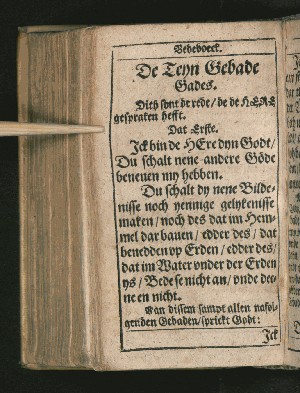 Bedeboeck.
De Teyn Gebade
Gades.
Dith synt de rede / de de HERE
gespraken hefft.
Dat Erste.
Ick bin de HEre dyn Godt /
Du schalt nene andere Göde
beneuen my hebben.
Du schalt dy nene Bilde-
nisse noch yennige gelykenisse
maken / noch des dat im Hem-
mel dar bauen / edder des / dat
benedden vp Erden / edder des /
dat im Water vnder der Erden
ys / Bede se nicht an / vnde de-
ne en nicht.
Van dissem sampt allen nafol-
genden Gebaden / sprickt Godt:
Ick